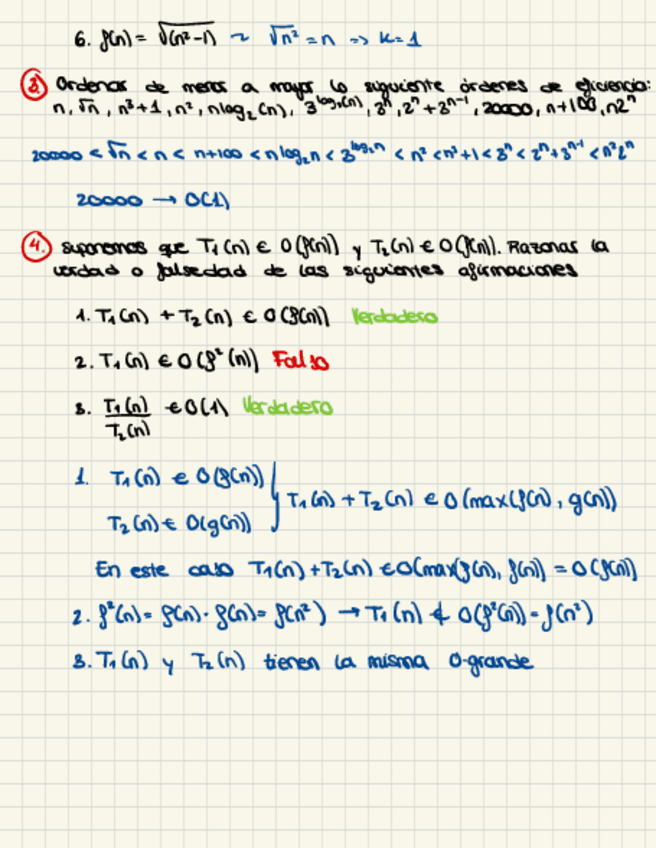 6. f(n) = √(n²-1) ~ √n² = n => k=1
3. Ordenar de menos a mayor lo siguiente órdenes de eficiencia:
n, √n, n³+1, n², nlog₂(n), 3^log₂(n), 3ⁿ, 2ⁿ+3ⁿ⁻¹, 20000, n+100, n2ⁿ
20000 < √n < n < n+100 < nlog₂n < 3^log₂n < n² < n³+1 < 3ⁿ < 2ⁿ+3ⁿ⁻¹ < n²2ⁿ
20000 → O(1)
4. Suponemos que T₁(n) ∈ O(f(n)) y T₂(n) ∈ O(f(n)). Razonar la
verdad o falsedad de las siguientes afirmaciones
1. T₁(n) + T₂(n) ∈ O(f(n)) Verdadero
2. T₁(n) ∈ O(f²(n)) Falso
3. T₁(n)/T₂(n) ∈ O(1) Verdadero
1. T₁(n) ∈ O(f(n))
T₂(n) ∈ O(g(n)) } T₁(n) + T₂(n) ∈ O(max(f(n), g(n))
En este caso T₁(n) + T₂(n) ∈ O(max(f(n), f(n)) = O(f(n))
2. f²(n) = f(n) · f(n) = f(n²) → T₁(n) ∉ O(f²(n)) = f(n²)
3. T₁(n) y T₂(n) tienen la misma O-grande